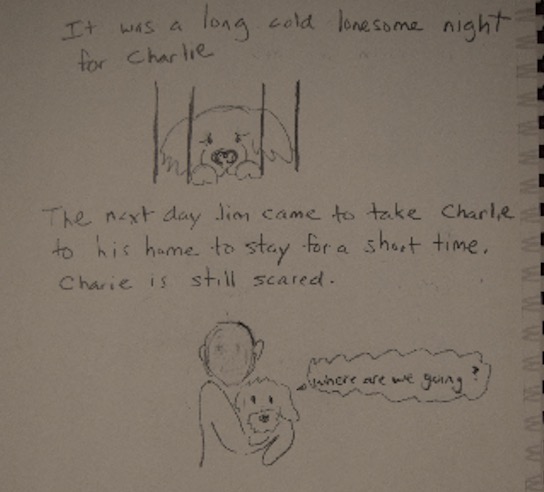 It was a long cold lonesome night
for Charlie
The next day Jim came to take Charlie
to his home to stay for a short time.
Charie is still scared.
Where are we going?